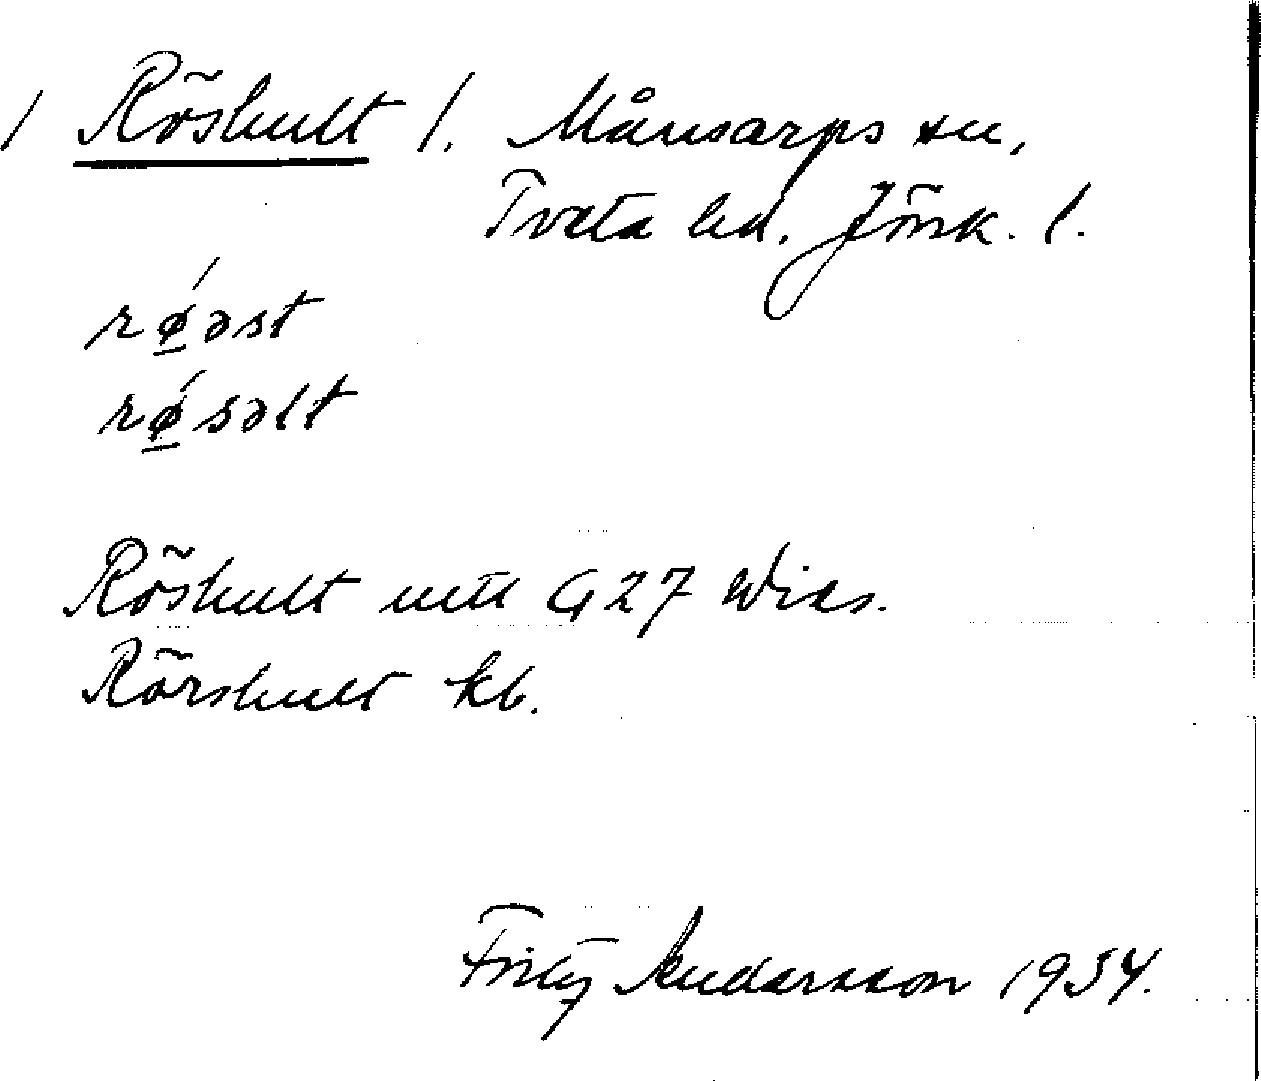 / Röshult /. Månsarps sn,
Tveta hd. Jönk. l.
rǿ̱əst
rǿ̱səlt
Röshult mtl G 27 Wids.
Rörshult kb.
Fritz Andersson 1934.